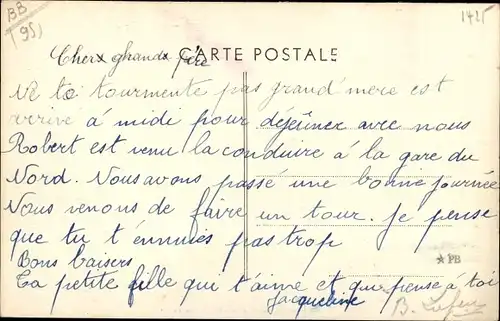 BB
(95)
1425
CARTE POSTALE
Cherx ghandx père
Ne te tourmente pas grand'mere est
arrivé à midi pour déjeûner avec nous
Robert est venu la conduire à la gare du
Nord. Nous avons passé une bonne journée
Nous venons de faire un tour. je pense
que tu t'ennuies pas trop
★ PB
Bons baisers
Ta petite fille qui t'aime et que pense à toi
Jacqueline
B.